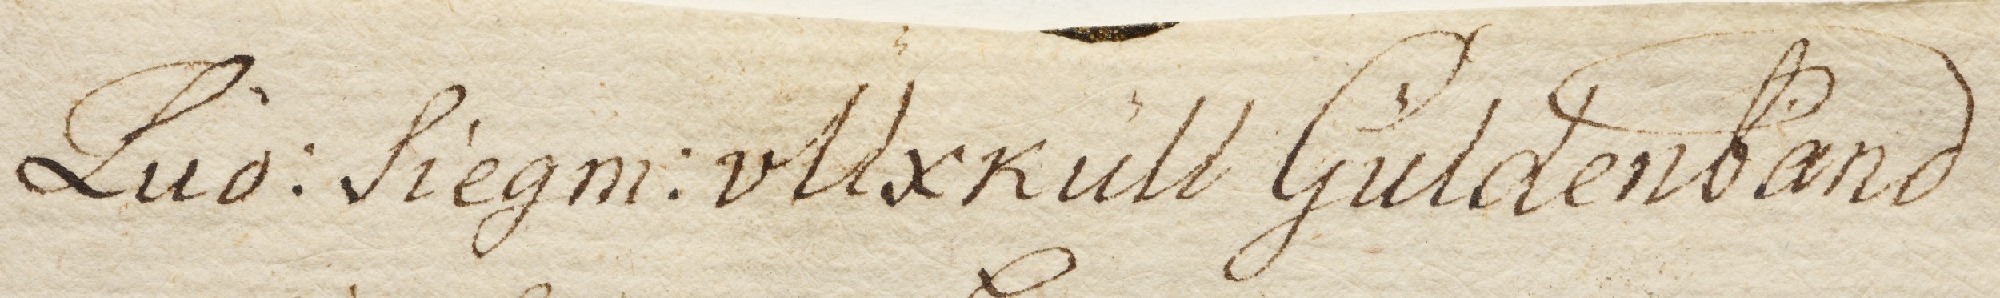 Lud: Siegm: v Üxküll Güldenband